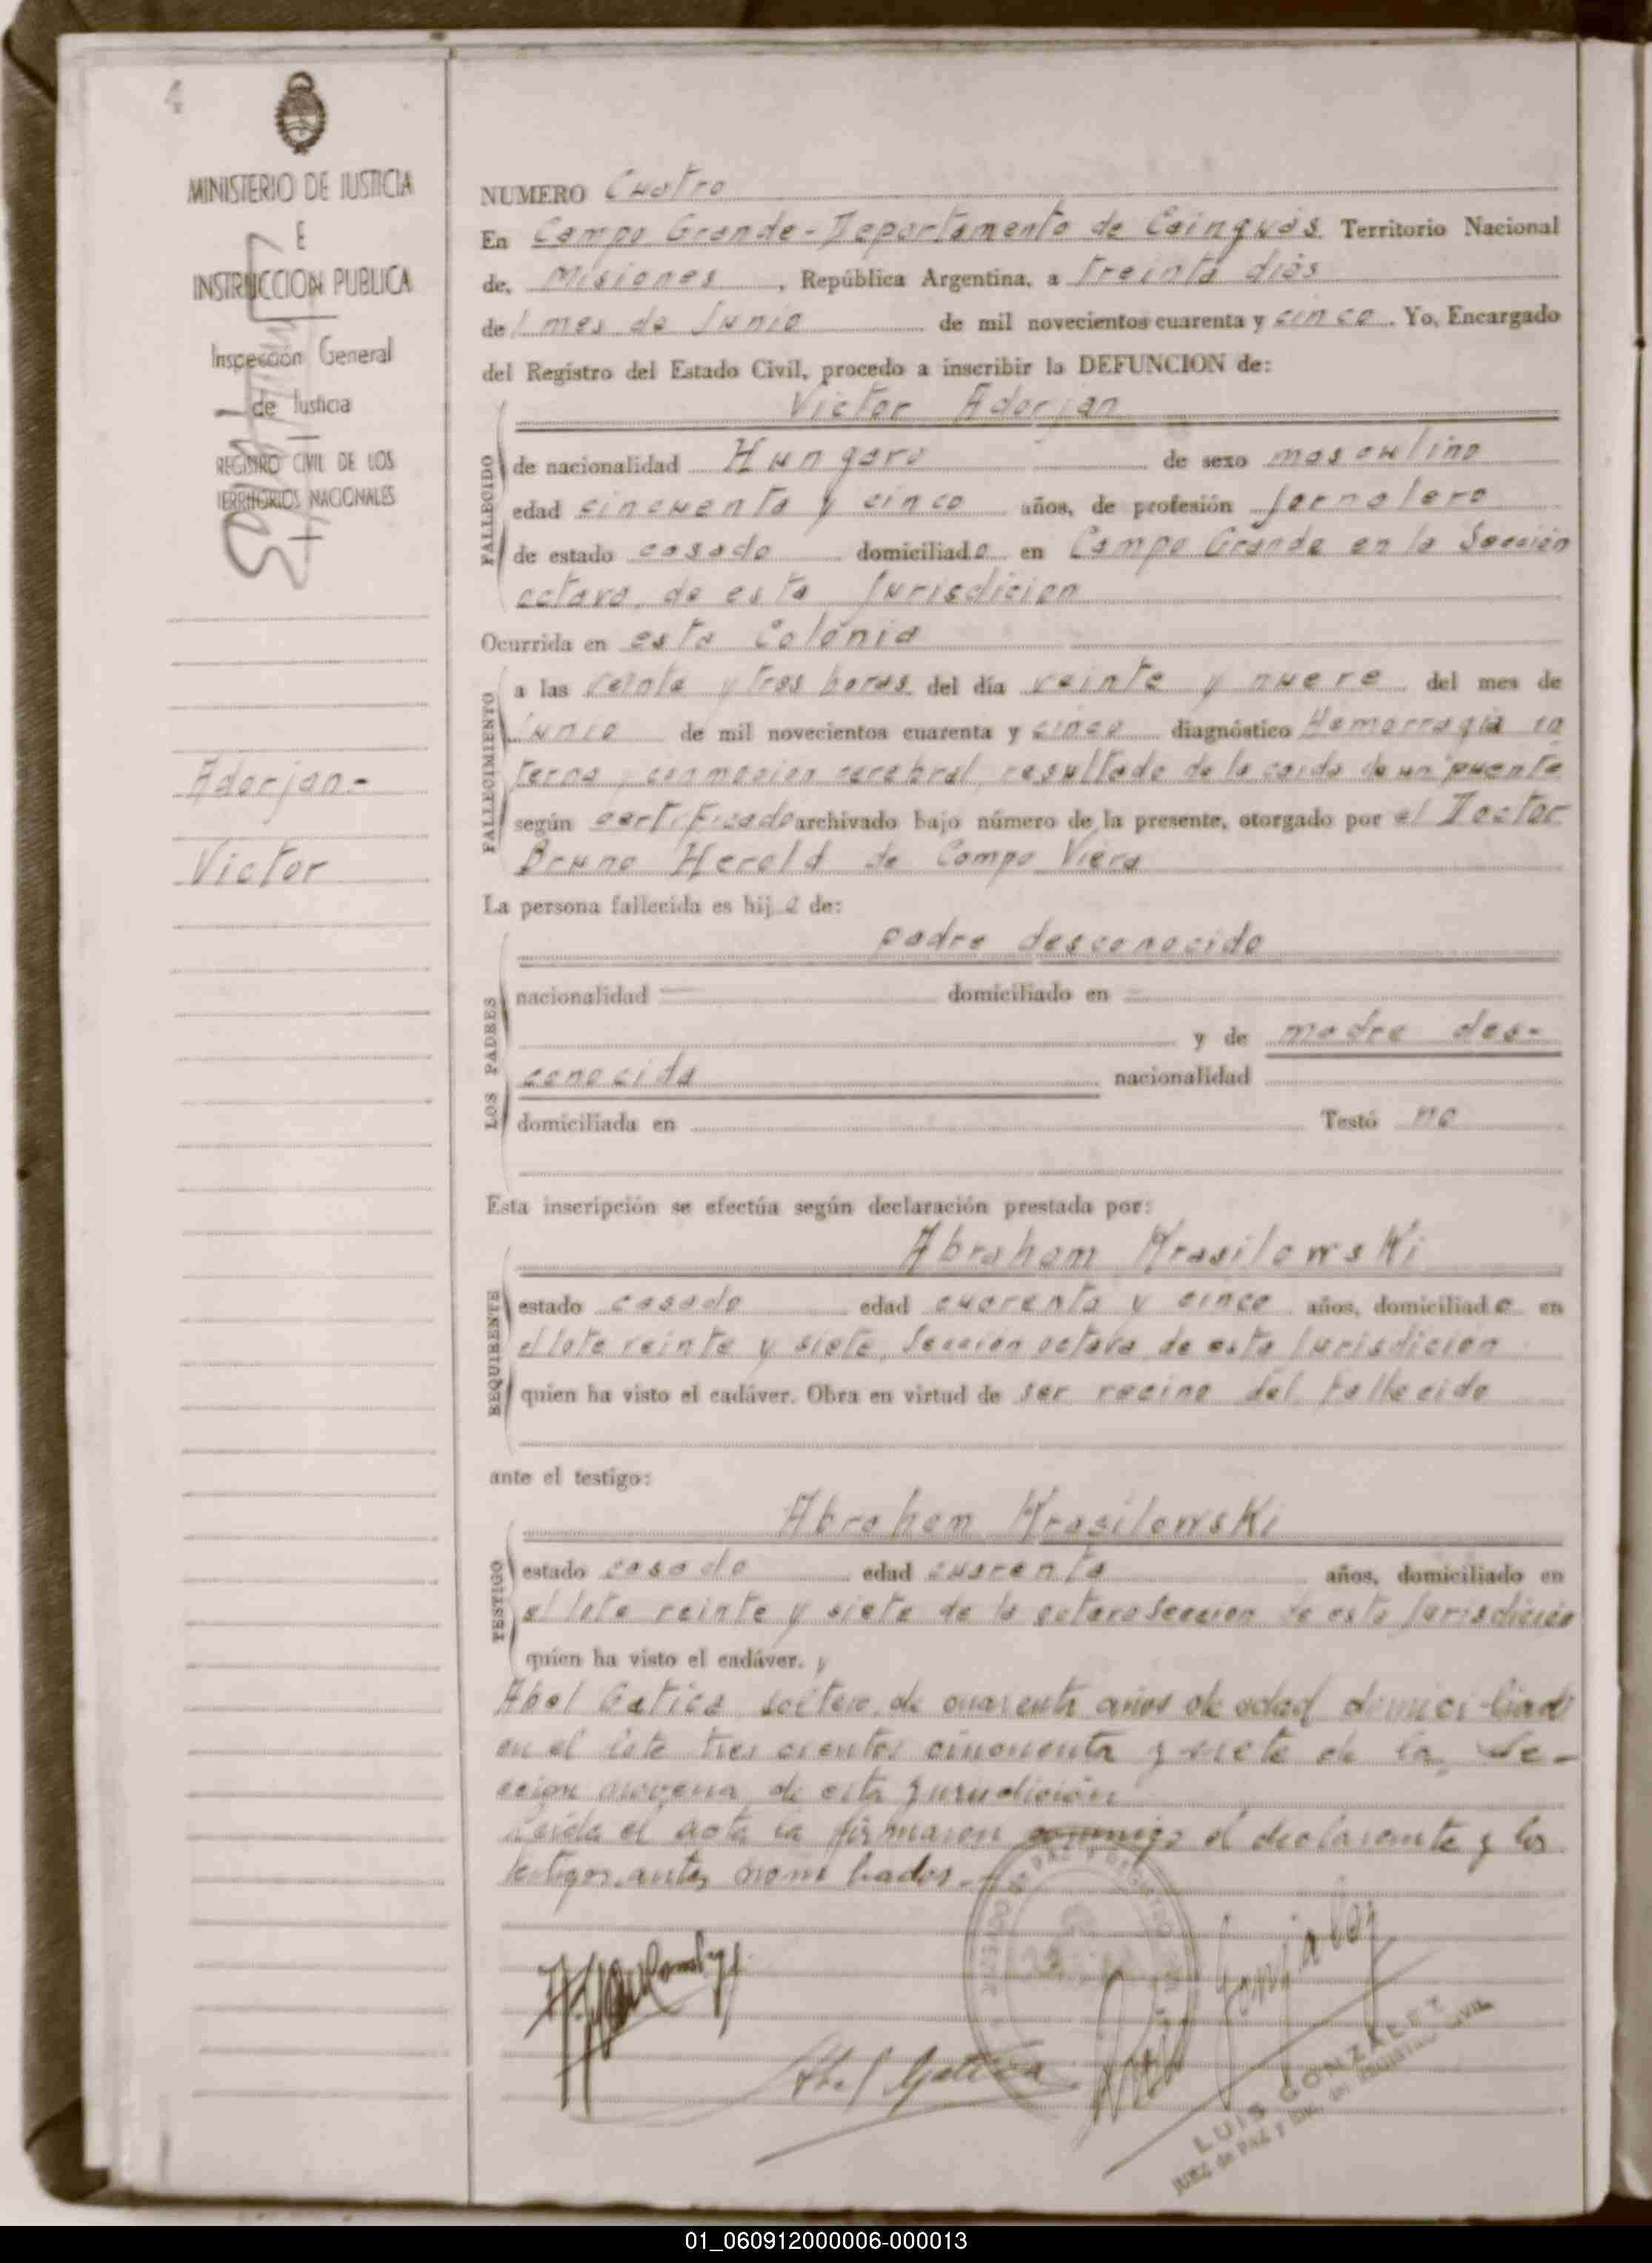 4
MINISTERIO DE JUSTICIA
E
INSTRUCCION PUBLICA
Inspección General
de Justicia
REGISTRO CIVIL DE LOS
TERRITORIOS NACIONALES
Adorjan-
Victor
NUMERO Cuatro
En Campo Grande-Departamento de Cainguás Territorio Nacional
de, Misiones, República Argentina, a treinta días
del mes de Junio de mil novecientos cuarenta y cinco. Yo, Encargado
del Registro del Estado Civil, procedo a inscribir la DEFUNCION de:
Victor Adorjan
FALLECIDO
de nacionalidad Hungaro de sexo masculino
edad cincuenta y cinco años, de profesión Jornalero
de estado casado domiciliado en Campo Grande en la Sección
octava, de esta Jurisdicion
Ocurrida en esta Colónia
FALLECIMIENTO
a las veinte y tres horas del día veinte y nueve del mes de
Junio de mil novecientos cuarenta y cinco diagnóstico Hemorragia in
terna, conmocion cerebral, resultado de la caida de un puente
según certificado archivado bajo número de la presente, otorgado por el Doctor
Bruno Herold de Campo Viera
La persona fallecida es hijo de:
LOS PADRES
padre desconocido
nacionalidad domiciliado en
y de madre des-
conocida nacionalidad
domiciliada en Testó no
Esta inscripción se efectúa según declaración prestada por:
REQUIRENTE
Abraham Krasilowski
estado casado edad cuarenta y cinco años, domiciliado en
el lote veinte y siete, Sección octava de esta Jurisdición
quien ha visto el cadáver. Obra en virtud de ser vecino del fallecido
ante el testigo:
TESTIGO
Abrahem Krasilowski
estado casado edad cuarenta años, domiciliado en
el lote veinte y siete de la octava Seccion de esta Jurisdición
quien ha visto el cadáver. y
Abel Gatica soltero, de cuarenta años de edad domiciliad
en el lote tres cientos cincuenta y siete de la Se-
ccion novena de esta Jurisdición
Leida el acta la firmaron conmigo el declarante y los
testigos antes nombrados.-
Abel Gatica
Luis Gonzalez
LUIS GONZALEZ
JUEZ de PAZ y Enc. del REGISTRO CIVIL
01_060912000006-000013